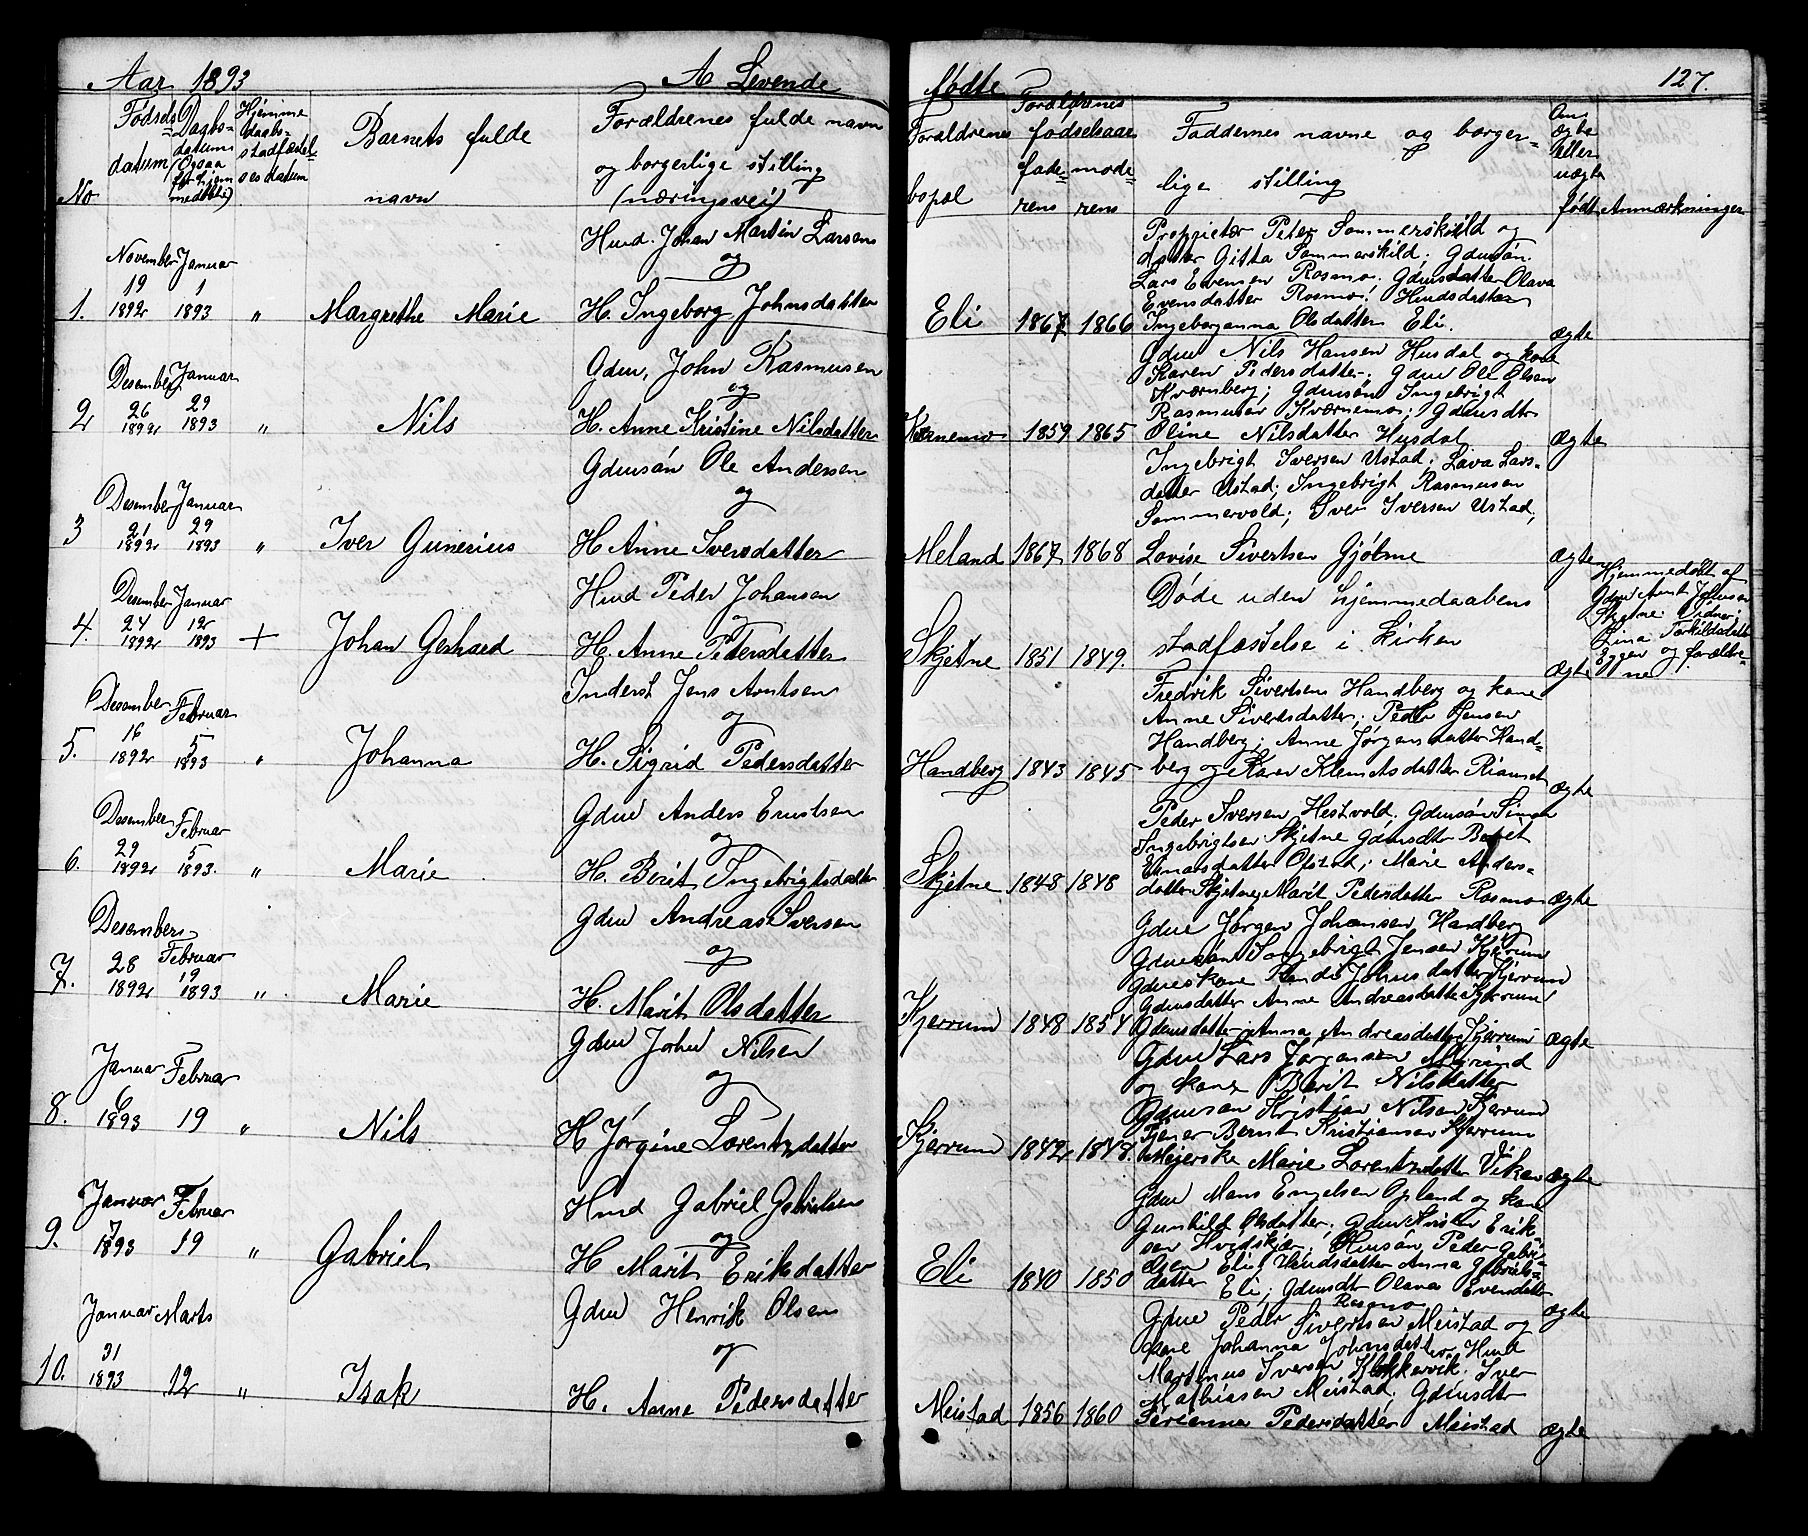 Aar 1893
A Levende
fødte
127.
No
Fødsels datum
Daabs- datum (Ogsaa for hjemmedøbte)
Hjemme daabs- stadfæstelses datum
Barnets fulde navn
Forældrenes fulde navn og borgerlige stilling (næringsvei)
Forældrenes bopæl
Forældrenes fødselsaar
faderens
moderens
Faddernes navne og borgerlige stilling
Om ægte eller uægte født
Anmærkninger
1.
November 19 1892
Januar 1 1893
"
Margrethe Marie
Husd. Johan Martin Larsen
og
H. Ingeborg Johnsdatter
Eli
1867
1866
Proprietær Peter Sommerskild og
datter Gitta Sommerskild; Gdmsøn
Lars Evensen Rosmo; Gdmsdatter Olava
Evensdatter Rosmo; Husdsdatter
Ingeborganna Olsdatter Eli.
ægte
2
Desember 26 1892
Januar 29 1893
"
Nils
Gdm. John Rasmusen
og
H. Anne Kristine Nilsdatter
Kværnemo
1859
1865
Gdm Nils Hansen Husdal og kone
Karen Pedersdatter; Gdm Ole Olsen
Kværnberg; Gdmsøn Ingebrigt
Rasmusen Kværnemo; Gdmsdtr
Oline Nilsdatter Husdal
ægte
3
Desember 21 1892
Januar 29 1893
"
Iver Gunerius
Gdmsøn Ole Andersen
og
H. Anne Iversdatter
Meland
1867
1868
Ingebrigt Iversen Ustad; Lava Lars-
datter Ustad; Ingebrigt Rasmusen
Sommervold; Iver Iversen Ustad;
Lovise Sivertsen Gjølme
ægte
4.
Desember 24 1892
Januar 12 1893
+
Johan Gerhard
Husd Peder Johansen
og
H. Anne Pedersdatter
Skjetne
1851
1849.
Døde uden hjemmedaabens
stadfæstelse i kirken
ægte
Hjemmedøbt af
Gdm Arnt Johnsen
Skjetne. Vidner:
Lina Torkildsdatter
Eggen og forældre-
ne
5.
Desember 16 1892
Februar 5 1893
"
Johanna
Inderst Jens Arntsen
og
H. Sigrid Pedersdatter
Handberg
1843
1845
Fredrik Sivertsen Handberg og kone
Anne Sivertsdatter; Peder Jensen
Handberg; Anne Jørgensdatter Hand-
berg og Karen Klemetsdatter
ægte
6.
Desember 29 1892
Februar 5 1893.
"
Marie
Gdm Anders Erntsen
og
H. Berit Ingebrigtsdatter
Skjetne
1848
1848
Peder Iversen Hestvold. Gdmsøn Simon
Ingebrigtsen Skjetne Gdmsdtr Beret
Olstad; Marie Anders-
datter Skjetne, Marit Pedersdatter Rosmo
ægte
7.
Desember 28 1892
Februar 19 1893
"
Marie
Gdm Andreas Iversen
og
H. Marit Olsdatter
Kjerrum
1848
1854
Gdm Jørgen Johansen Handberg
Gdmsøn Ingebrigt Jensen Kjerrum
Gdmskone Randi Johnsdatter Kjerrum
Gdmsdatter Anne Andreasdatter Kjerrum
Gdmsdatter Anna Andreasdatter Kjerrum
ægte
8.
Januar 6 1893
Februar 19
"
Nils
Gdm John Nilsen
og
H Jørgine Lorentzdatter
Kjerrum
1842
1848.
Gdm Lars Jørgensen
og kone Berit Nilsdatter
Gdmsøn Kristian Nilsen Kjerrum
Tjener Bernt Kristiansen Kjerrum
Meierske Marie Lorentzdatter Viken
ægte
9.
Januar 7 1893
Februar 19
"
Gabriel
Husd Gabriel Gabrielsen
og
H Marit Eriksdatter
Eli
1840
1850
Gdm Mons Engelsen Opland og kone
Gunhild Olsdatter; Gdm Erik-
sen; Husdsøn Peder Gabri-
elsen Eli; Husdsdatter Anna Gabriels-
datter Eli; Gdmsdtr Olava Evensdatter
Rosmo
ægte
10.
Januar 31 1893
Marts 12
"
Isak
Gdm Henrik Olsen
og
H. Anne Pedersdatter
Meistad
1856
1860
Gdm Peder Sivertsen Meistad og
kone Johanna Johnsdatter, Husd
Martinus Iversen Klokkervik. Iver
Mathiassen Meistad; Gdmsdtr
Serianna Pedersdatter Meistad
ægte